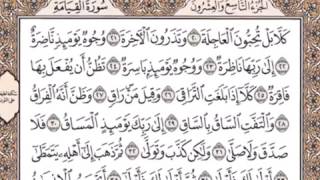 الجزء التاسع والعشرون سورة القيامة
كَلَّا بَلْ تُحِبُّونَ ٱلْعَاجِلَةَ ٢٠ وَتَذَرُونَ ٱلْآخِرَةَ ٢١ وُجُوهٌ يَوْمَئِذٍ نَّاضِرَةٌ
٢٢ إِلَىٰ رَبِّهَا نَاظِرَةٌ ٢٣ وَوُجُوهٌ يَوْمَئِذٍ بَاسِرَةٌ ٢٤ تَظُنُّ أَن يُفْعَلَ بِهَا
فَاقِرَةٌ ٢٥ كَلَّا إِذَا بَلَغَتِ ٱلتَّرَاقِيَ ٢٦ وَقِيلَ مَنْ رَاقٍ ٢٧ وَظَنَّ أَنَّهُ ٱلْفِرَاقُ
٢٨ وَٱلْتَفَّتِ ٱلسَّاقُ بِٱلسَّاقِ ٢٩ إِلَىٰ رَبِّكَ يَوْمَئِذٍ ٱلْمَسَاقُ ٣٠ فَلَا
صَدَّقَ وَلَا صَلَّىٰ ٣١ وَلَٰكِن كَذَّبَ وَتَوَلَّىٰ ٣٢ ثُمَّ ذَهَبَ إِلَىٰ أَهْلِهِ يَتَمَطَّىٰ